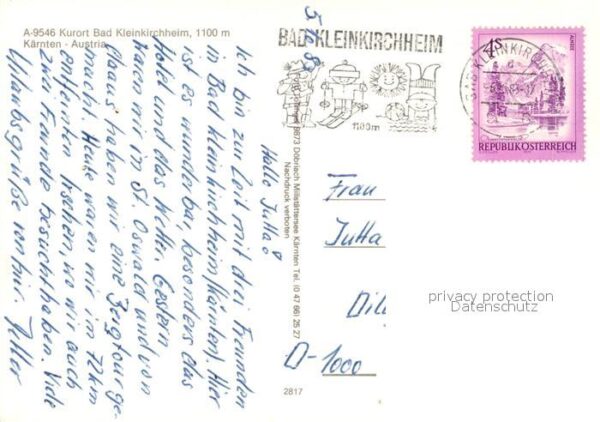 A-9546 Kurort Bad Kleinkirchheim, 1100 m
Kärnten - Austria
5.8.
Hallo Jutta!
Ich bin zur Zeit mit drei Freunden
in Bad Kleinkirchheim (Kärnten). Hier
ist es wunderbar, besonders das
Hotel und das Wetter. Gestern
waren wir in St. Oswald und von
haus haben wir eine Bergtour ge-
macht. Heute waren wir im 72km
entfernten, wo wir auch
zwei Freunde besucht haben. Viele
Urlaubsgrüße von
9873 Döbriach Millstättersee Kärnten Tel. (0 47 66) 25 27
Nachdruck verboten
2817
BAD KLEINKIRCHHEIM
1100m
BAD KLEINKIRCH
4S
REPUBLIK ÖSTERREICH
Frau
Jutta
D-1000
privacy protection
Datenschutz